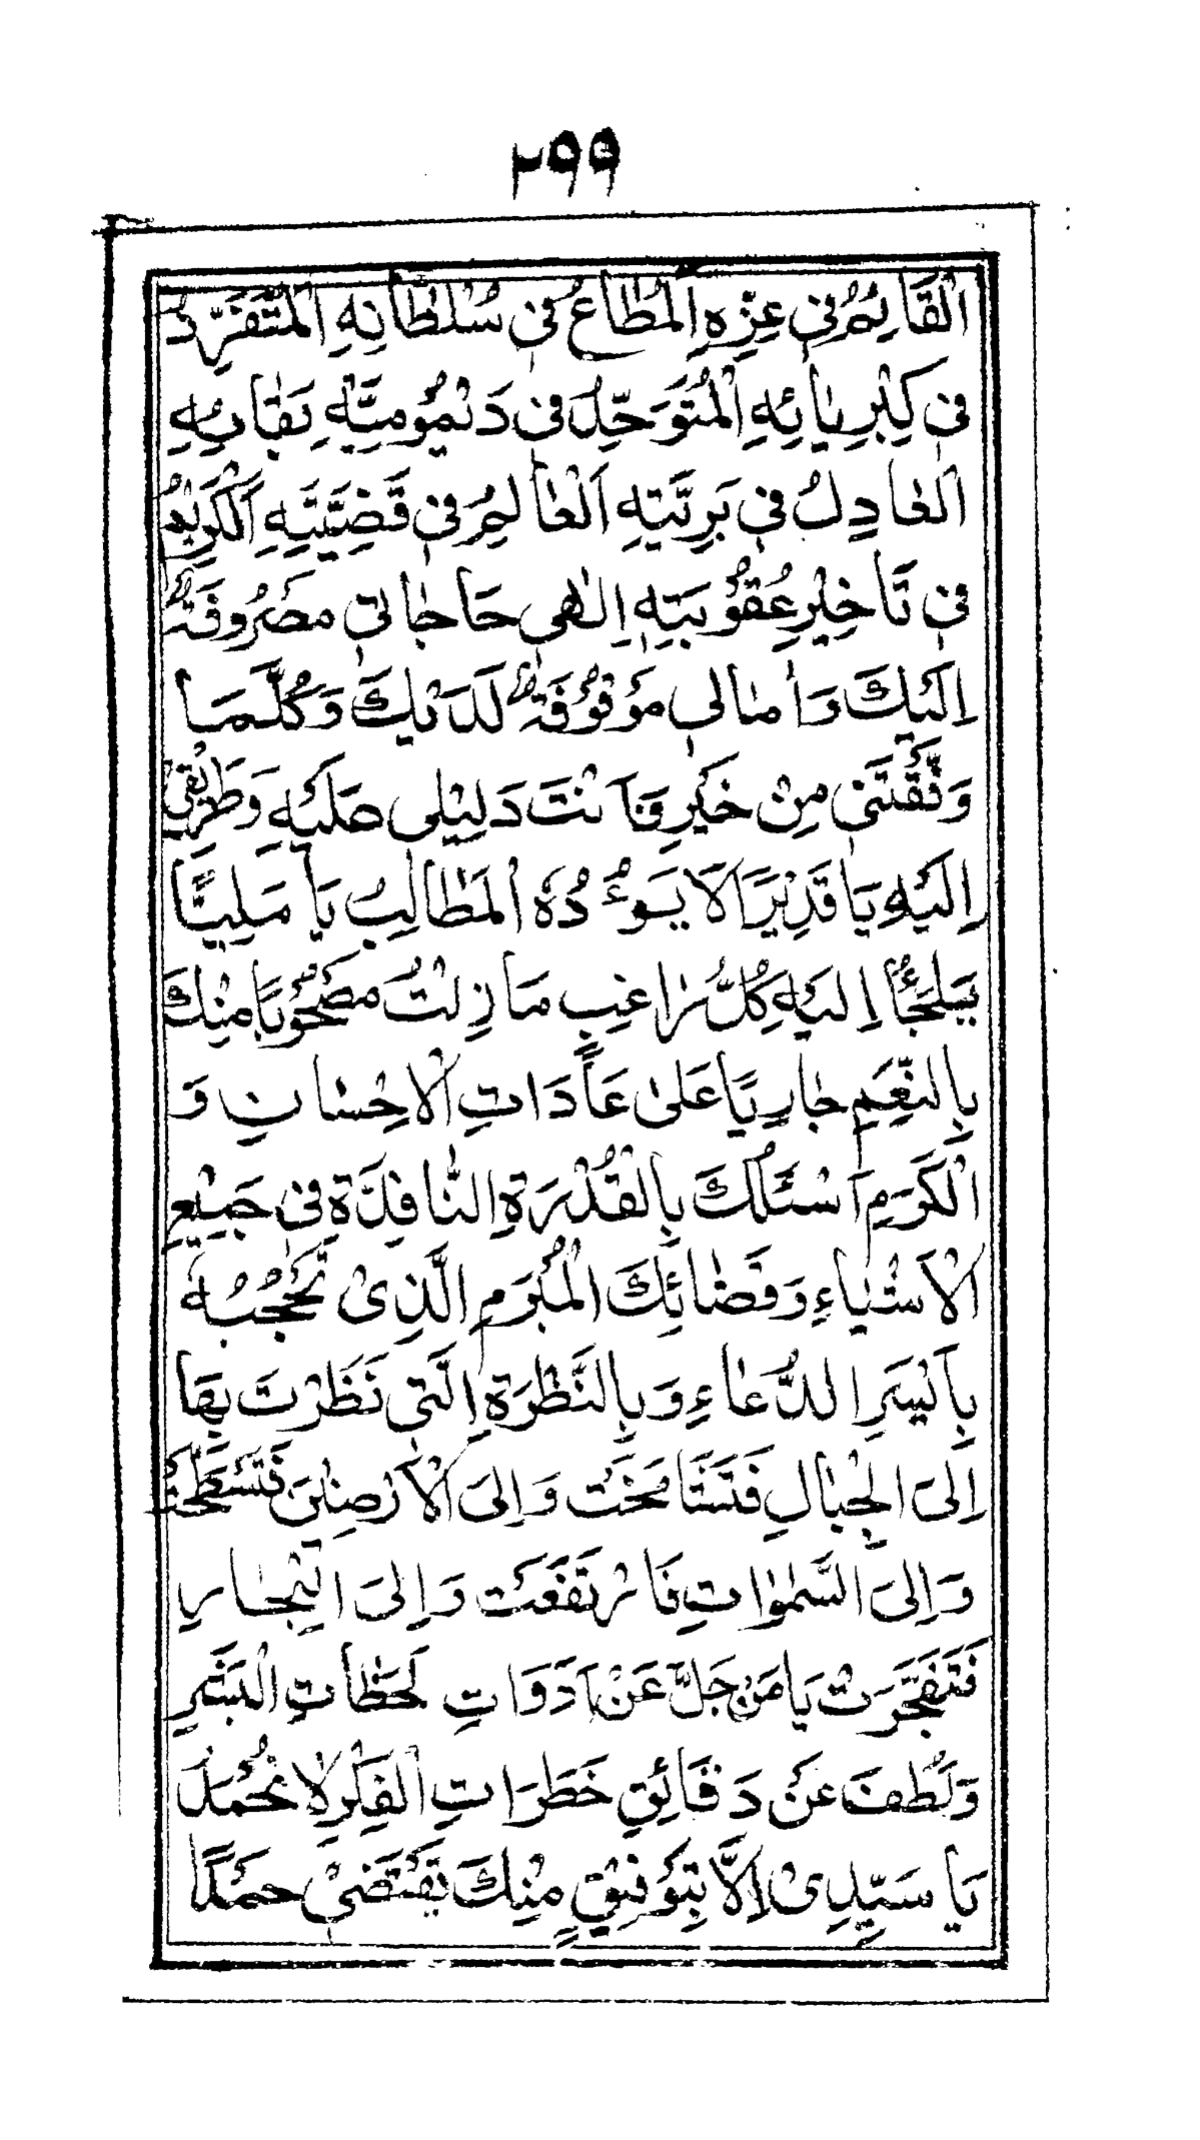 ٢٩٩
اَلْقَائِمُ فِي عِزِّهِ اَلْمُطَاعُ فِي سُلْطَانِهِ اَلْمُتَفَرِّدُ
فِي كِبْرِيَائِهِ اَلْمُتَوَحِّدُ فِي دَيْمُومِيَّةِ بَقَائِهِ
اَلْعَادِلُ فِي بَرِيَّتِهِ اَلْعَالِمُ فِي قَضِيَّتِهِ اَلْكَرِيْمُ
فِي تَأخِيْرِ عُقُوْبَتِهِ اِلٰهِي حَاجَاتِي مَصْرُوفَةٌ
اِلَيْكَ وَاٰمَالِي مَوْقُوْفَةٌ لَدَيْكَ وَكُلَّمَا
وَفَّقْتَنِي مِنْ خَيْرٍ فَاَنْتَ دَلِيْلِي عَلَيْهِ وَطَرِيْقِي
اِلَيْهِ يَا قَدِيْرًا لَا يَؤُدُهُ الْمَطَالِبُ يَا مَلِيًّا
يَلْجَأُ اِلَيْهِ كُلُّ رَاغِبٍ مَا زِلْتُ مَصْحُوْبًا مِنْكَ
بِالنِّعَمِ جَارِيًا عَلٰى عَادَاتِ الْاِحْسَانِ وَ
الْكَرَمِ اَسْئَلُكَ بِالْقُدْرَةِ النَّافِذَةِ فِي جَمِيْعِ
الْاَشْيَاءِ وَقَضَائِكَ الْمُبْرَمِ الَّذِيْ تَحْجُبُهُ
بِاَيْسَرِ الدُّعَاءِ وَبِالنَّظْرَةِ الَّتِي نَظَرْتَ بِهَا
اِلَى الْجِبَالِ فَتَشَامَخَتْ وَاِلَى الْاَرْضِيْنَ فَتَسَطَّحَتْ
وَاِلَى السَّمٰوَاتِ فَارْتَفَعَتْ وَاِلَى الْبِحَارِ
فَتَفَجَّرَتْ يَا مَنْ جَلَّ عَنْ اَدَوَاتِ لَحَظَاتِ الْبَشَرِ
وَلَطُفَ عَنْ دَقَائِقِ خَطَرَاتِ الْفِكْرِ لَا تُحْمَدُ
يَا سَيِّدِيْ اِلَّا بِتَوْفِيْقٍ مِنْكَ يَقْتَضِيْ حَمْدًا